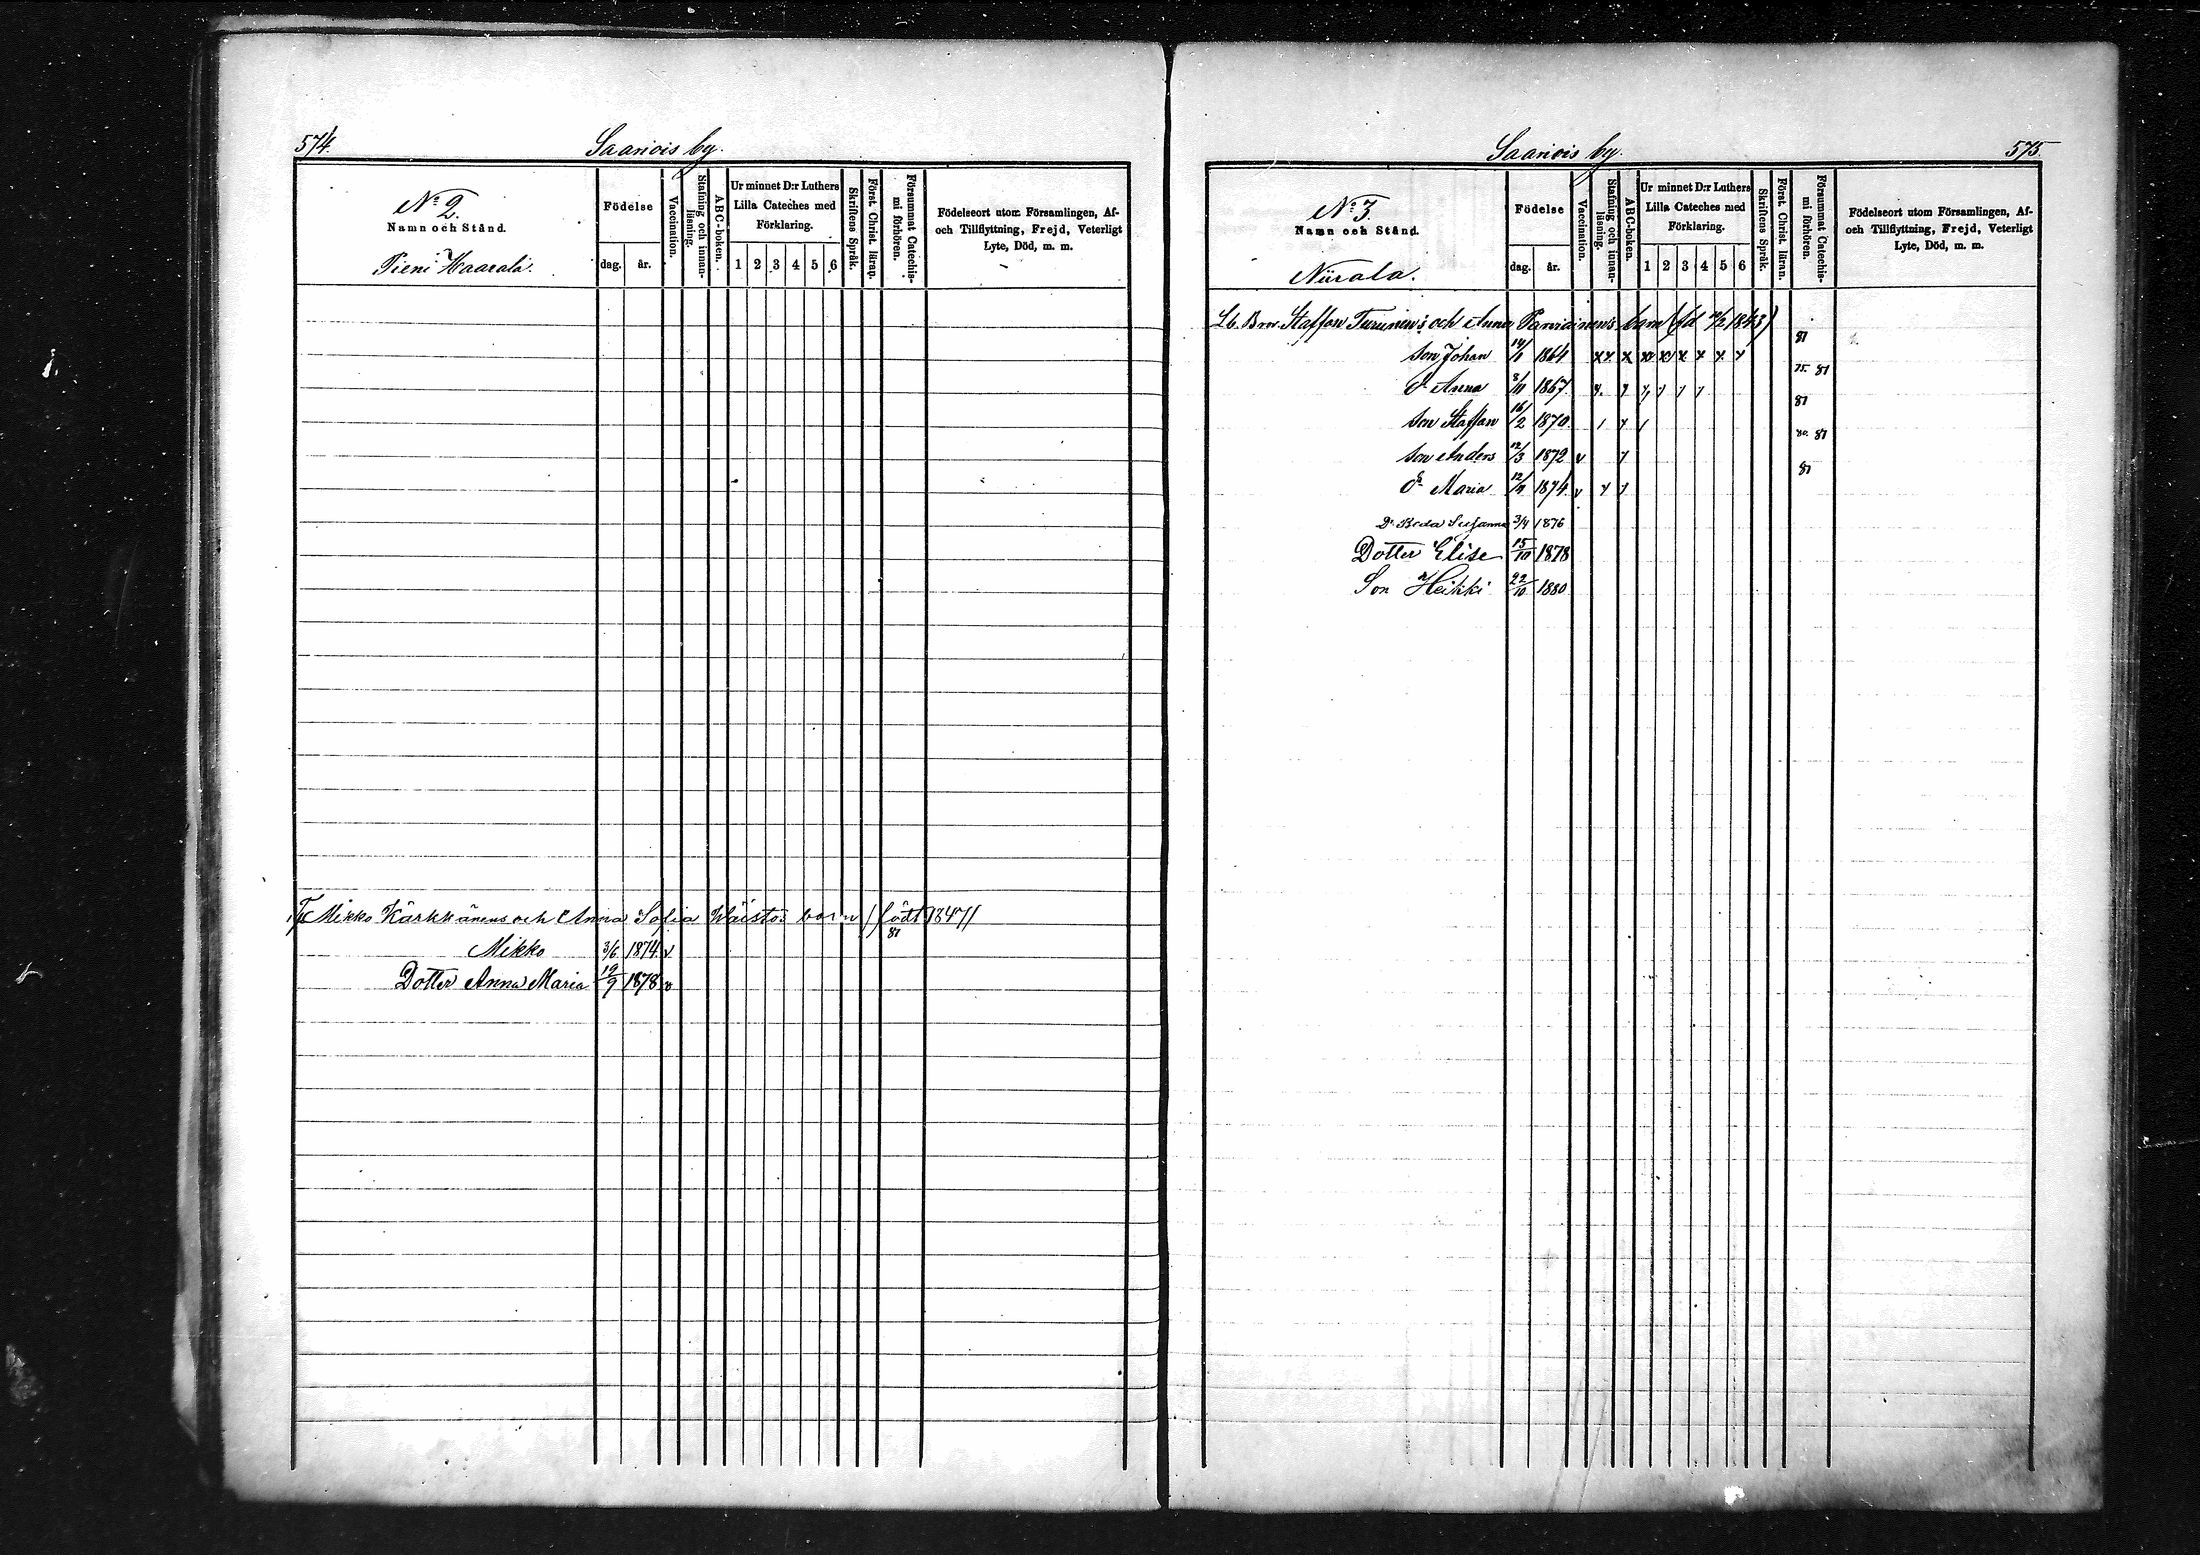 574.
Saariois by.
No 2.
Namn och Stånd.
Pieni Haarala.
Födelse
dag.
år.
Vaccination.
Stafning och innanläsning.
ABC-boken.
Ur minnet D:r Luthers
Lilla Cateches med
Förklaring.
1 2 3 4 5 6
Skriftens Språk.
Först. Christ. läran.
Försummat Catechismi förhören.
Födelseort utom Församlingen, Af-
och Tillflyttning, Frejd, Veterligt
Lyte, Död, m. m.
Mikko Kärkkänens och Anna Sofia Wäistös barn (född 1847)
Mikko 3/6 1874 v 81
Dotter Anna Maria 12/9 1878 v
Saariois by.
575.
No 3.
Namn och Stånd.
Niirala.
Födelse
dag.
år.
Vaccination.
Stafning och innanläsning.
ABC-boken.
Ur minnet D:r Luthers
Lilla Cateches med
Förklaring.
1 2 3 4 5 6
Skriftens Språk.
Först. Christ. läran.
Försummat Catechismi förhören.
Födelseort utom Församlingen, Af-
och Tillflyttning, Frejd, Veterligt
Lyte, Död, m. m.
Staffan Turunen's och Anna Parviainens barn (fd 1843)
Son Johan 14/1 1864 81
dr Anna 8/11 1867 75 81
Son Staffan 16/2 1870 81
Son Anders 12/3 1872 v 80. 81
dr Maria 1874 v 81
Dr Beda Susanna 3/4 1876
Dotter Elise 15/10 1878
Son Heikki 22/10 1880